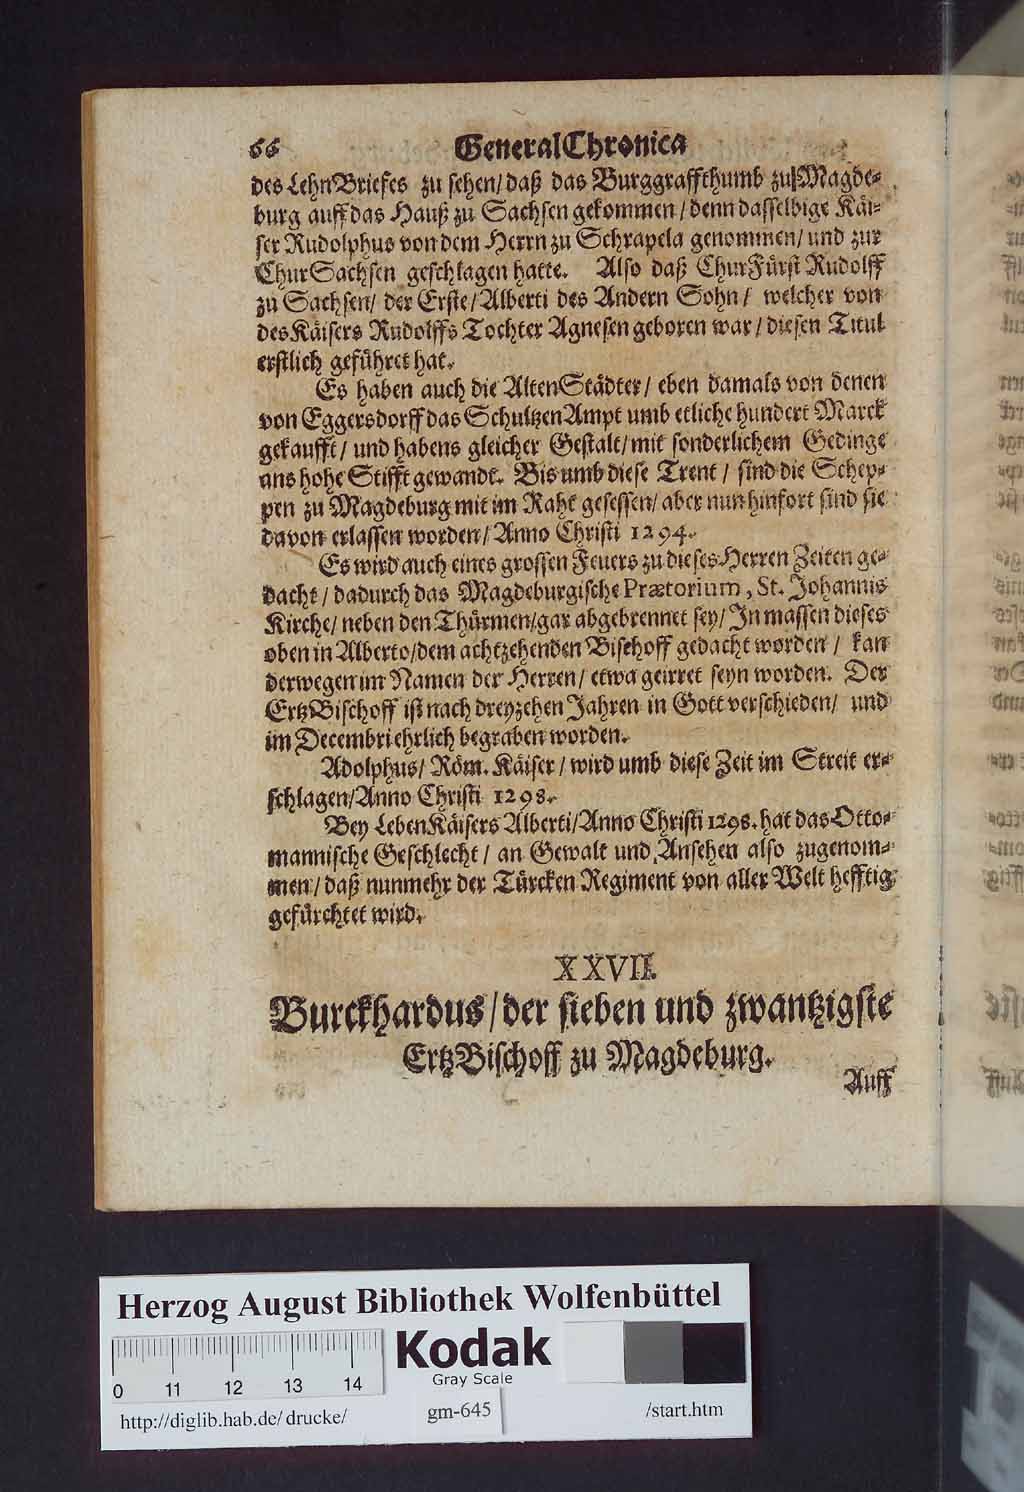 66 GeneralChronica
des LehnBriefes zu sehen/ daß das Burggraffthumb zu Magde-
burg auff das Hauß zu Sachsen gekommen / denn dasselbige Käi-
ser Rudolphus von dem Herrn zu Schrapela genommen/ und zur
ChurSachsen geschlagen hatte. Also daß ChurFürst Rudolff
zu Sachsen/ der Erste/ Alberti des Andern Sohn / welcher von
des Käisers Rudolffs Tochter Agnesen geboren war / diesen Titul
erstlich geführet hat.
Es haben auch die AltenStädter/ eben damals von denen
von Eggersdorff das SchultzenAmpt umb etliche hundert Marck
gekaufft/ und habens gleicher Gestalt/ mit sonderlichem Gedinge
ans hohe Stifft gewandt. Bis umb diese Trent / sind die Schep-
pen zu Magdeburg mit im Raht gesessen/ aber nun hinfort sind sie
davon erlassen worden/ Anno Christi 1294.
Es wird auch eines grossen Feuers zu dieses Herren Zeiten ge-
dacht / dadurch das Magdeburgische Prætorium, St. Johannis
Kirche/ neben den Thürmen/ gar abgebrennet sey/ In massen dieses
oben in Alberto/ dem achtzehenden Bischoff gedacht worden / kan
derwegen im Namen der Herren/ etwa geirret seyn worden. Der
ErtzBischoff ist nach dreyzehen Jahren in Gott verschieden/ und
im Decembri ehrlich begraben worden.
Adolphus/ Röm. Käiser / wird umb diese Zeit im Streit er-
schlagen/ Anno Christi 1298.
Bey Leben Käisers Alberti/ Anno Christi 1298. hat das Otto-
mannische Geschlecht / an Gewalt und Ansehen also zugenom-
men / daß nunmehr der Türcken Regiment von aller Welt hefftig
gefürchtet wird.
XXVII.
Burckhardus/ der sieben und zwantzigste
ErtzBischoff zu Magdeburg.
Auff
Herzog August Bibliothek Wolfenbüttel
Kodak
Gray Scale
0 11 12 13 14
http://diglib.hab.de/ drucke/ gm-645 /start.htm